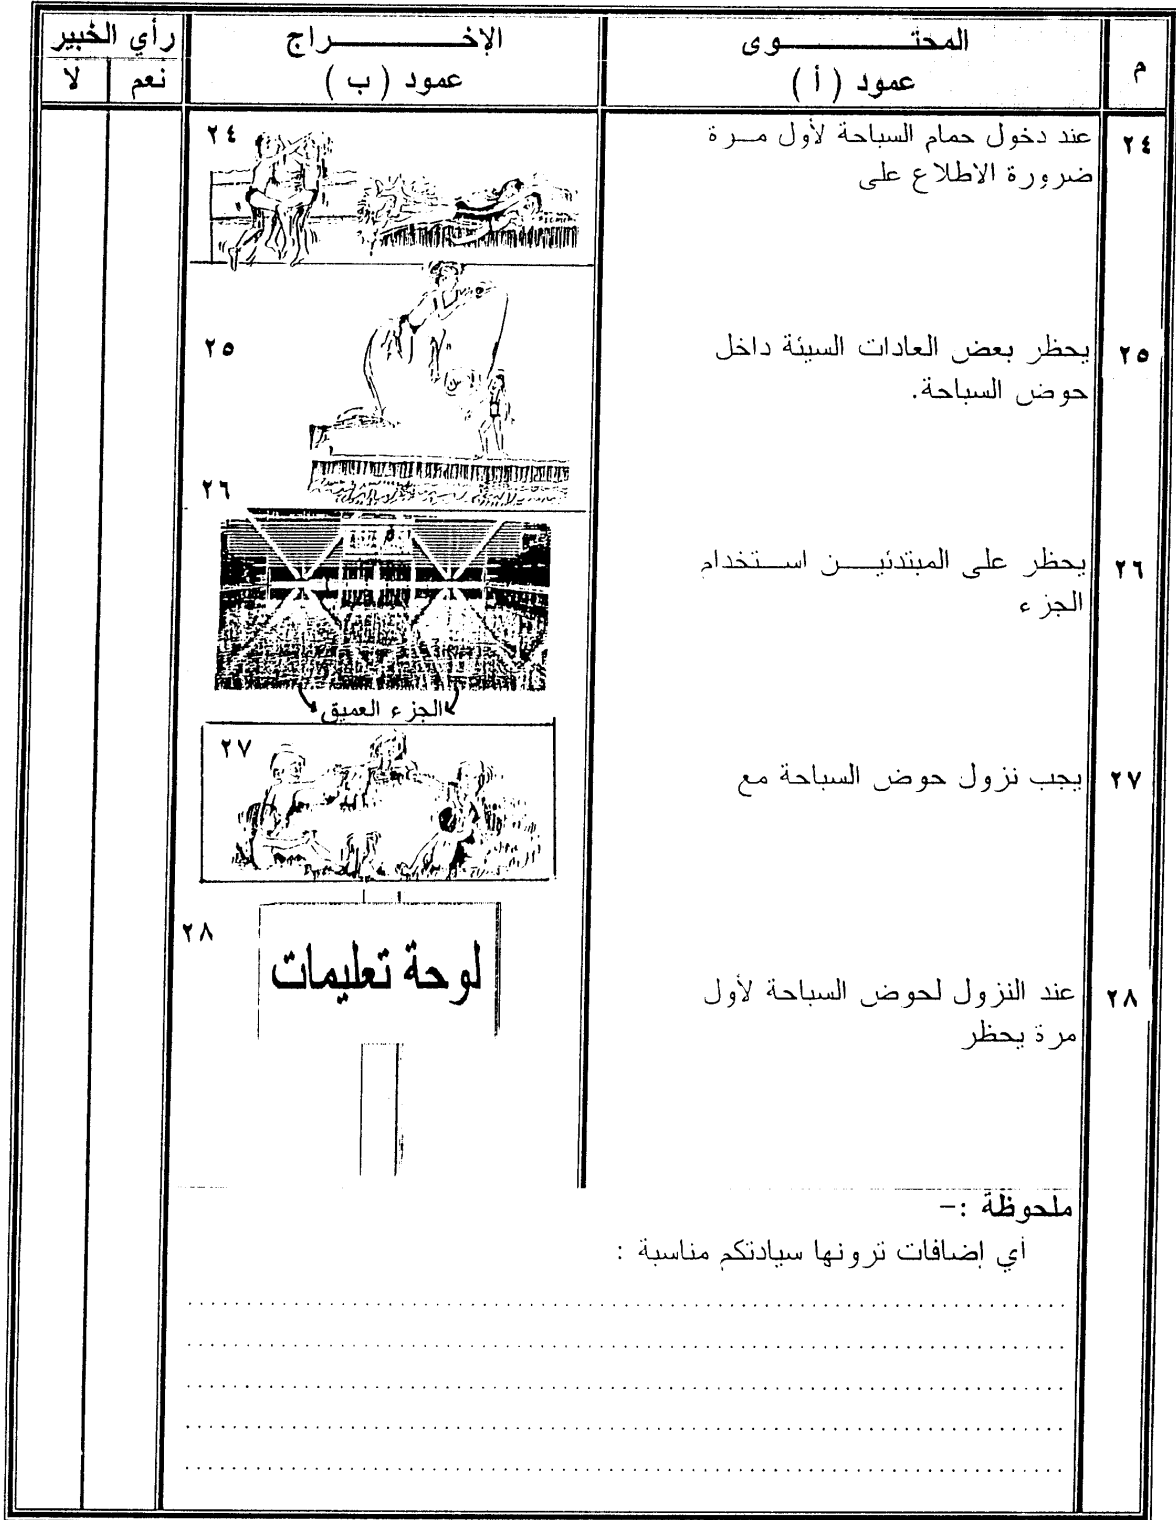 م
المحتوى
عمود ( أ )
الإخراج
عمود ( ب )
رأي الخبير
نعم
لا
٢٤
عند دخول حمام السباحة لأول مرة
ضرورة الاطلاع على
٢٤
٢٥
يحظر بعض العادات السيئة داخل
حوض السباحة.
٢٥
٢٦
يحظر على المبتدئين استخدام
الجزء
٢٦
الجزء العميق
٢٧
يجب نزول حوض السباحة مع
٢٧
٢٨
عند النزول لحوض السباحة لأول
مرة يحظر
٢٨
لوحة تعليمات
ملحوظة :-
أي إضافات ترونها سيادتكم مناسبة :